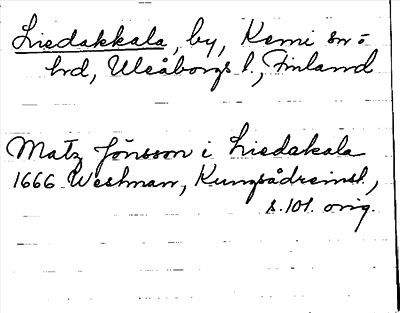 Liedakkala, by, Kemi sn o
hd, Uleåborgs l., Finland
Matz Jönsson i Liedakala
1666 Westman, Kungsådreinst.,
s. 101. orig.